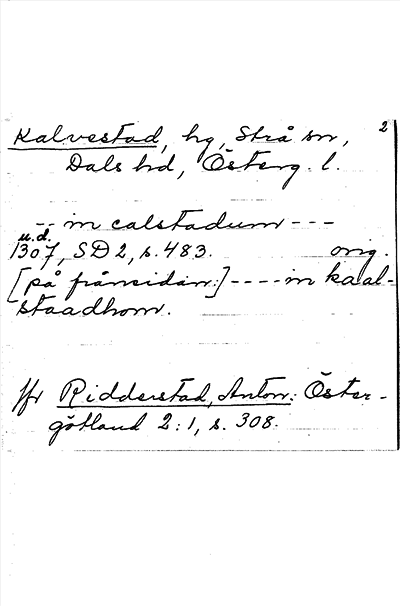 2
Kalvestad, hg, Strå sn,
Dals hd, Österg. l.
-- in calstadum ---
u.d.
1307, SD 2, s. 483. orig.
[på frånsidan:] ---- in kaal-
staadhom.
Jfr Ridderstad, Anton: Öster-
götland 2:1, s. 308.